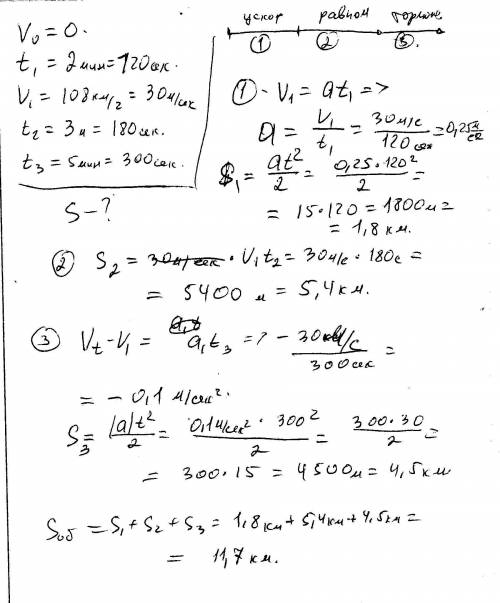 V₀ = 0.
t₁ = 2мин = 120сек.
V₁ = 108км/г = 30м/сек
t₂ = 3м = 180сек.
t₃ = 5мин = 300сек.
S - ?
ускор равном тормож
① ② ③.
① - V₁ = at₁ =>
a = V₁/t₁ = 30м/с / 120сек = 0,25 м/с²
S₁ = at²/2 = 0,25·120²/2 =
= 15·120 = 1800м =
= 1,8 км.
② S₂ = 30м/сек · V₁t₂ = 30м/с · 180с =
= 5400 м = 5,4км.
③ Vt - V₁ = a₁t a₁t₃ => - 30м/с / 300сек =
= - 0,1 м/сек².
S₃ = |a|t²/2 = 0,1м/сек² · 300²/2 = 300·30/2 =
= 300·15 = 4500м = 4,5км
Sоб = S₁ + S₂ + S₃ = 1,8км + 5,4км + 4,5км =
= 11,7 км.